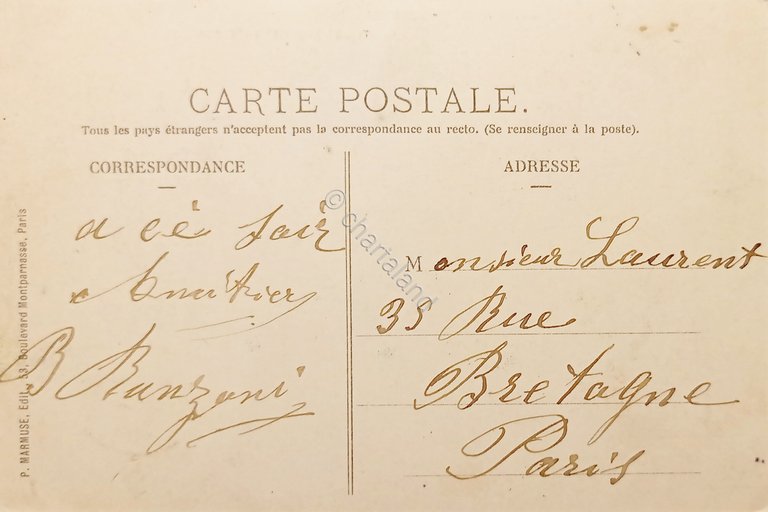 CARTE POSTALE.
Tous les pays étrangers n'acceptent pas la correspondance au recto. (Se renseigner à la poste).
CORRESPONDANCE
a cé soir
Amitier
B Ranzoni
ADRESSE
Monsieur Laurent
35 Rue
Bretagne
Paris
P. MARMUSE, Edit., 53, Boulevard Montparnasse, Paris
© chartaland